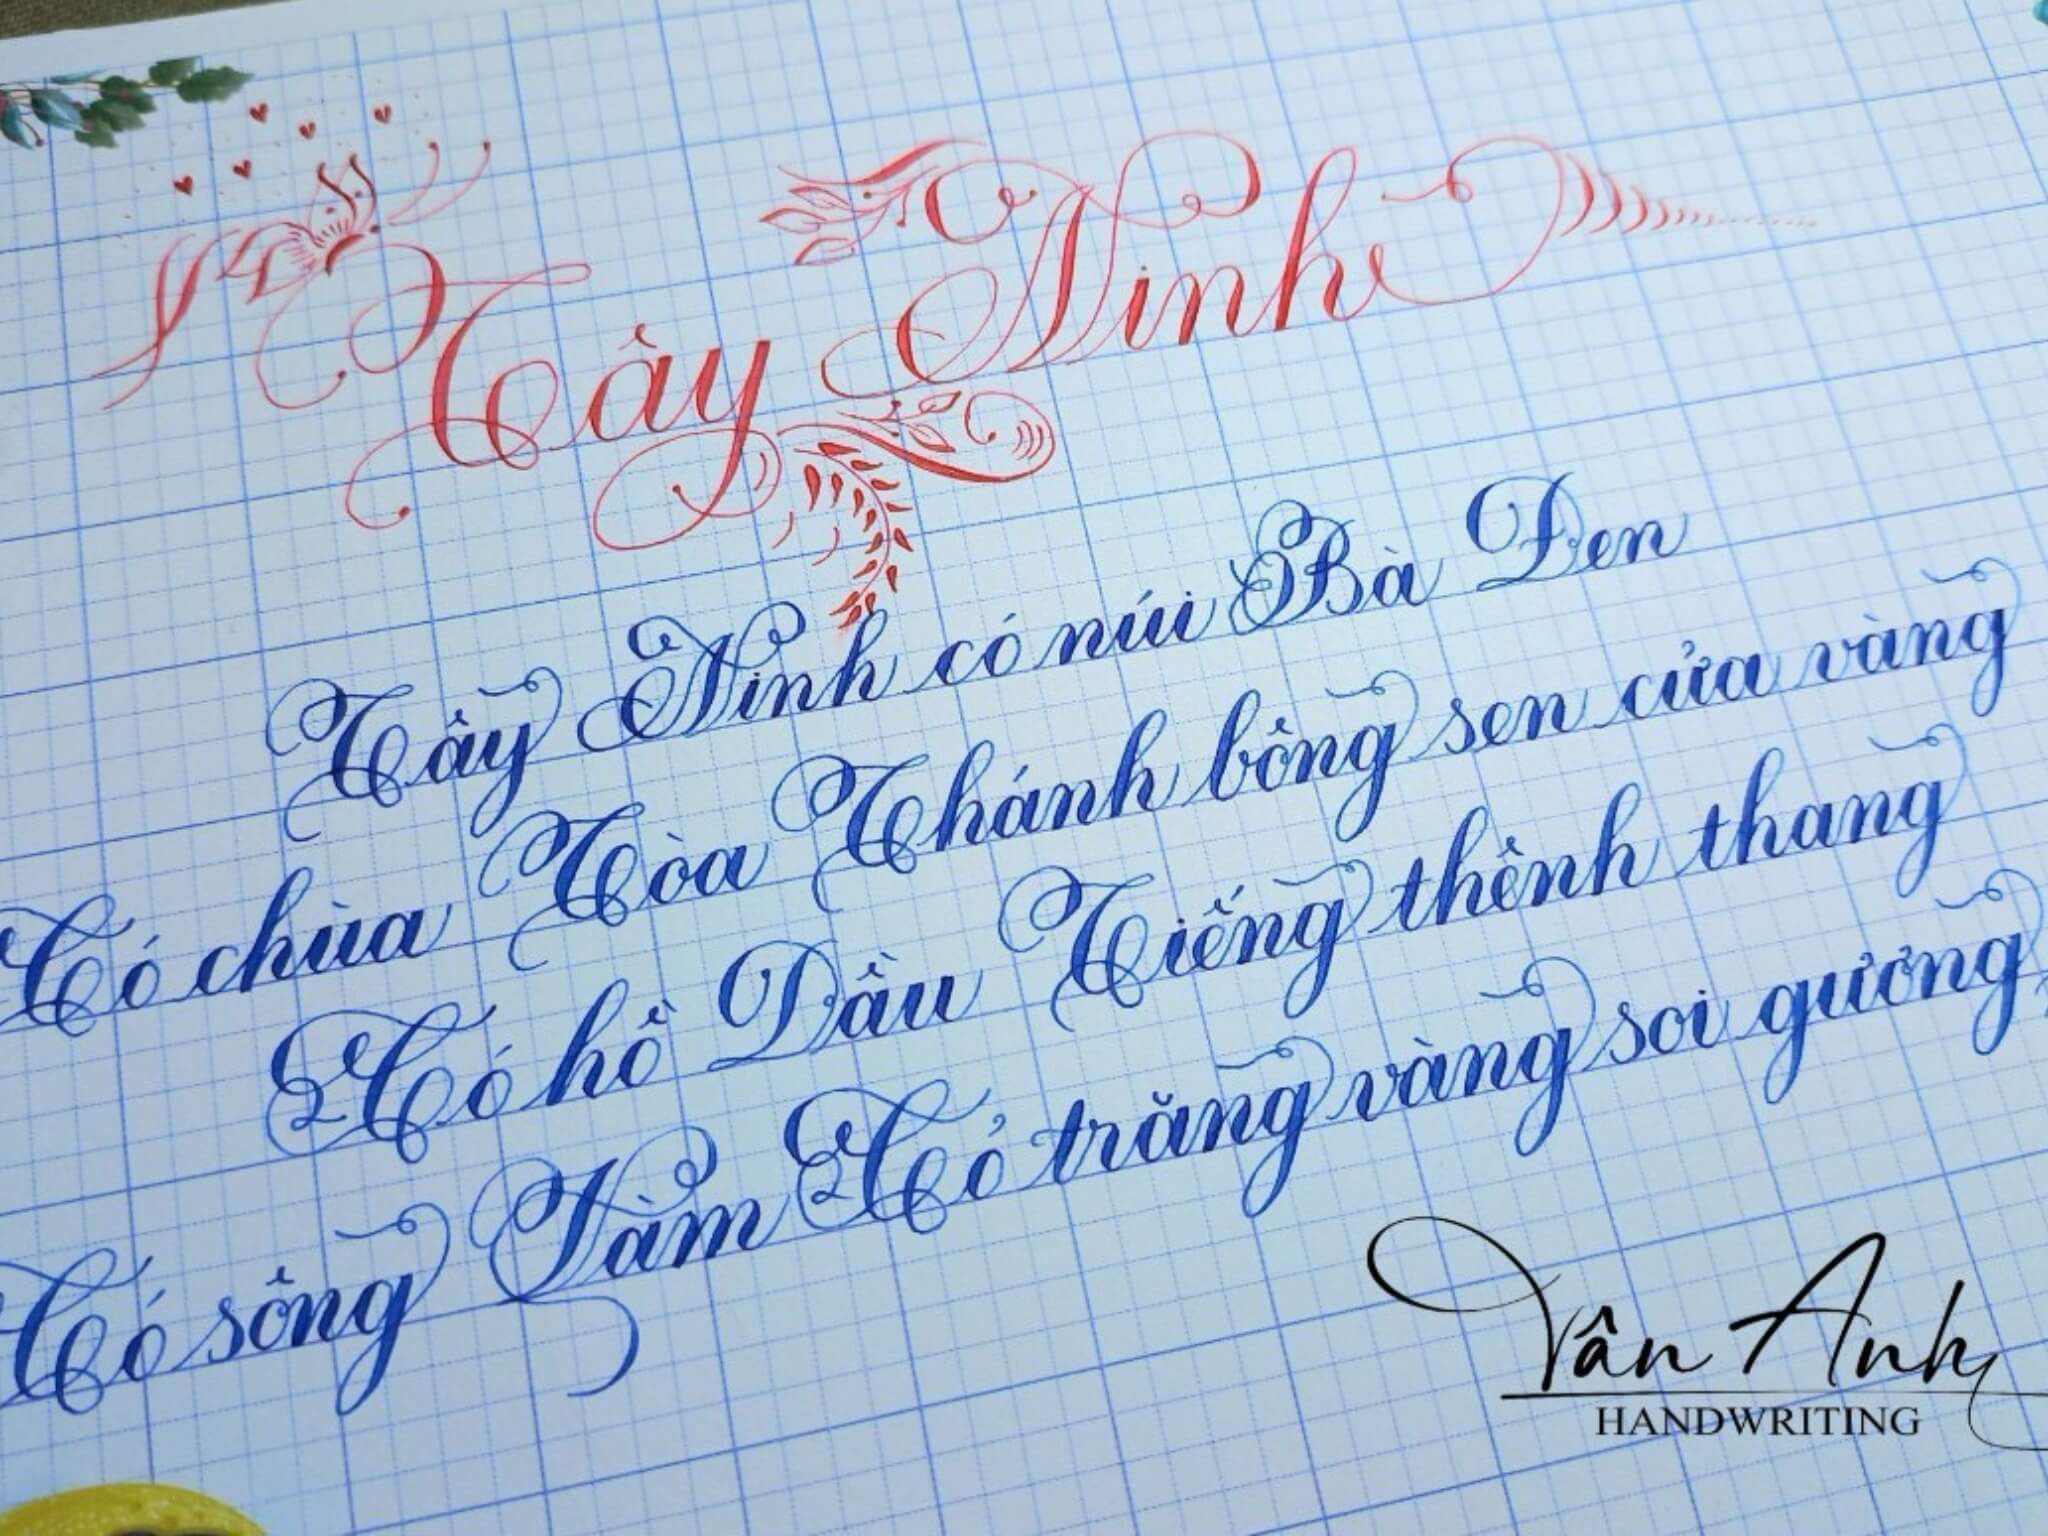 Tây Ninh
Tây Ninh có núi Bà Đen
Có chùa Tòa Thánh bông sen cửa vàng
Có hồ Dầu Tiếng thênh thang
Có sông Vàm Cỏ trăng vàng soi gương
Vân Anh
HANDWRITING